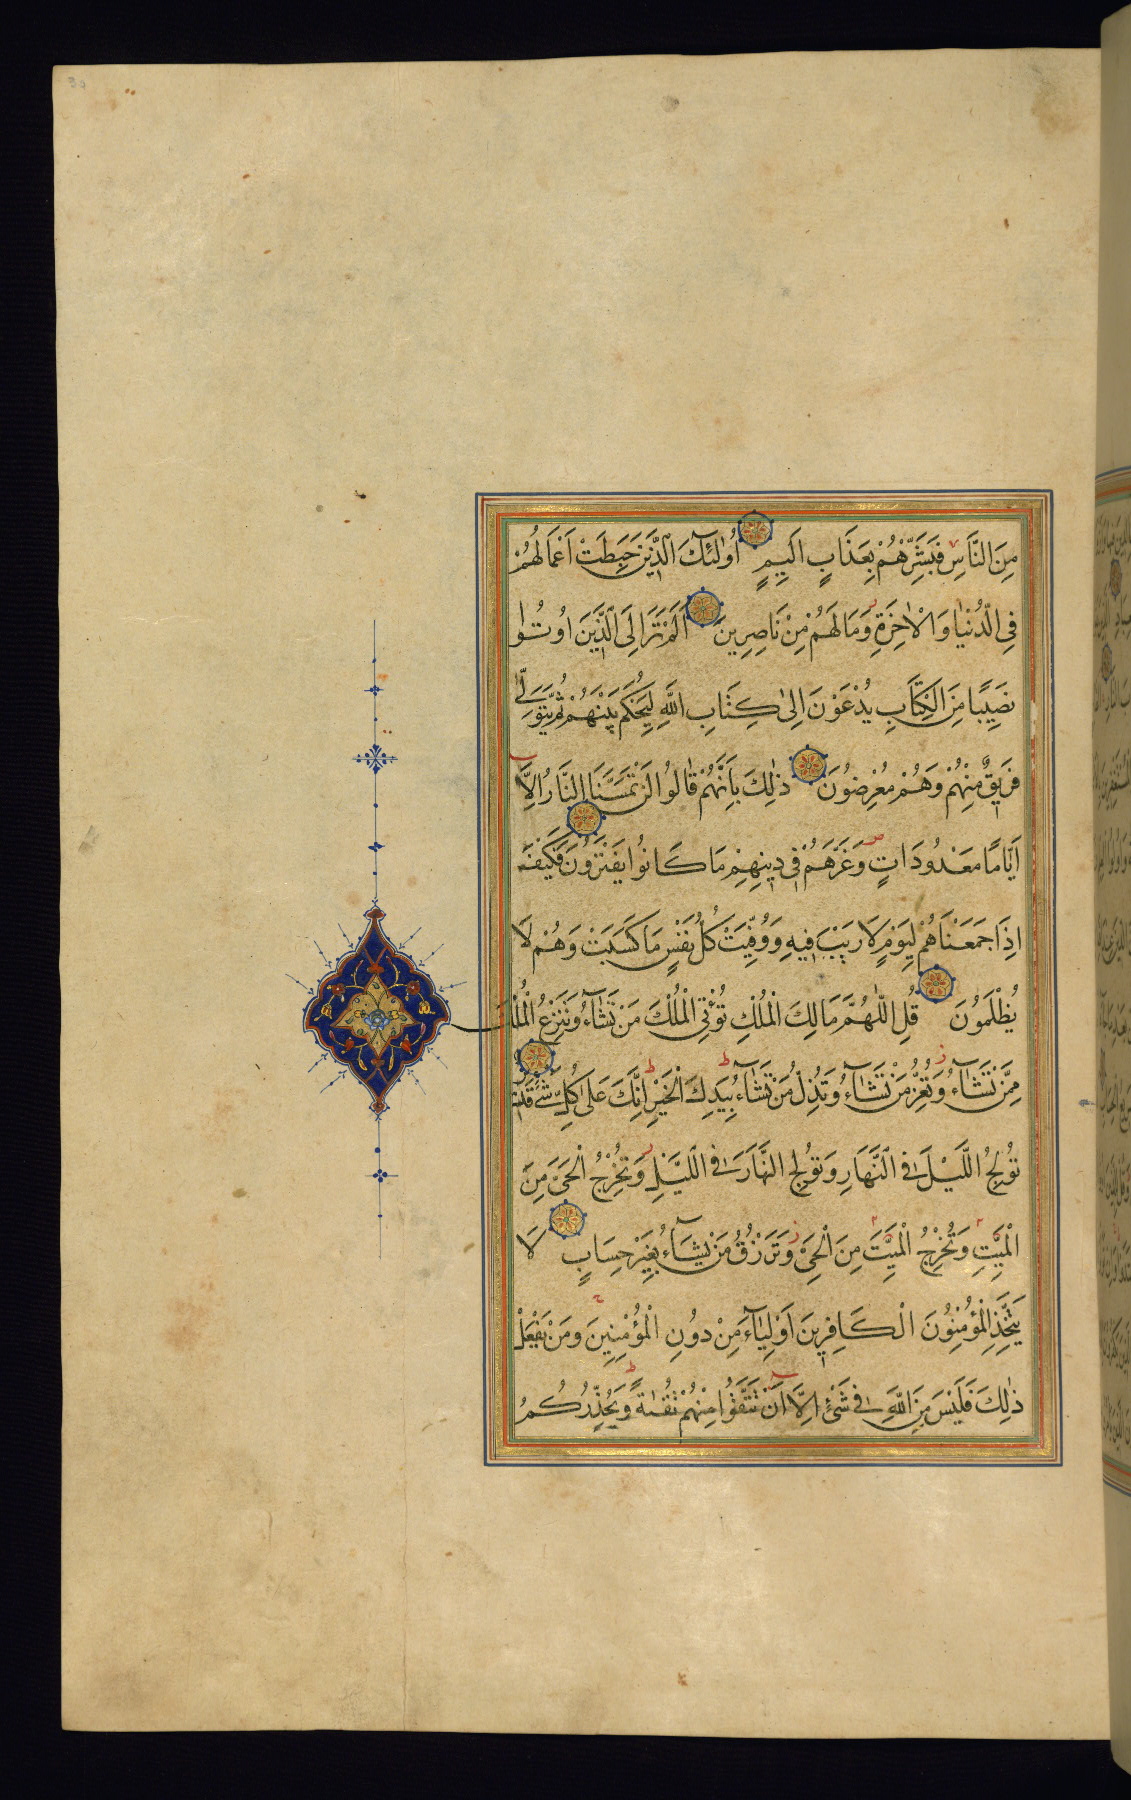 مِنَ النَّاسِ فَبَشِّرْهُمْ بِعَذَابٍ اَلِيمٍ اُولٰئِكَ الَّذِينَ حَبِطَتْ اَعْمَالُهُمْ
فِى الدُّنْيٰا وَالْاٰخِرَةِ وَمَا لَهُمْ مِنْ نَاصِرِينَ اَلَمْ تَرَ اِلَى الَّذِينَ اُوتُوا
نَصِيبًا مِنَ الْكِتَابِ يُدْعَوْنَ اِلىٰ كِتَابِ اللّٰهِ لِيَحْكُمَ بَيْنَهُمْ ثُمَّ يَتَوَلّٰى
فَرِيقٌ مِنْهُمْ وَهُمْ مُعْرِضُونَ ذٰلِكَ بِاَنَّهُمْ قَالُوا لَنْ تَمَسَّنَا النَّارُ اِلَّا
اَيَّامًا مَعْدُودَاتٍ وَغَرَّهُمْ فِى دِينِهِمْ مَا كَانُوا يَفْتَرُونَ فَكَيْفَ
اِذَا جَمَعْنَاهُمْ لِيَوْمٍ لَا رَيْبَ فِيهِ وَوُفِّيَتْ كُلُّ نَفْسٍ مَا كَسَبَتْ وَهُمْ لَا
يُظْلَمُونَ قُلِ اللّٰهُمَّ مَالِكَ الْمُلْكِ تُؤْتِى الْمُلْكَ مَنْ تَشَآءُ وَتَنْزِعُ الْمُلْكَ
مِمَّنْ تَشَآءُ وَتُعِزُّ مَنْ تَشَآءُ وَتُذِلُّ مَنْ تَشَآءُ بِيَدِكَ الْخَيْرُ اِنَّكَ عَلىٰ كُلِّ شَىْءٍ قَدِيرٌ
تُولِجُ اللَّيْلَ فِى النَّهَارِ وَتُولِجُ النَّهَارَ فِى اللَّيْلِ وَتُخْرِجُ الْحَىَّ مِنَ
الْمَيِّتِ وَتُخْرِجُ الْمَيِّتَ مِنَ الْحَىِّ وَتَرْزُقُ مَنْ تَشَآءُ بِغَيْرِ حِسَابٍ لَا
يَتَّخِذِ الْمُؤْمِنُونَ الْكَافِرِينَ اَوْلِيَآءَ مِنْ دُونِ الْمُؤْمِنِينَ وَمَنْ يَفْعَلْ
ذٰلِكَ فَلَيْسَ مِنَ اللّٰهِ فِى شَىْءٍ اِلَّا اَنْ تَتَّقُوا مِنْهُمْ تُقٰىةً وَيُحَذِّرُكُمُ